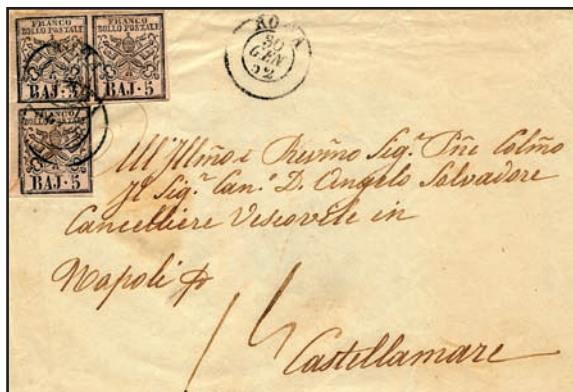 FRANCO
BOLLO POSTALE
BAJ·5
FRANCO
BOLLO POSTALE
BAJ·5
FRANCO
BOLLO POSTALE
BAJ·5
ROMA
30
GEN
52
All'Illmo e Revmo Sig.r Pñe Colmo
Il Sig.r Can.o D. Angelo Salvadore
Cancelliere Vescovile in
Napoli p
Castellamare